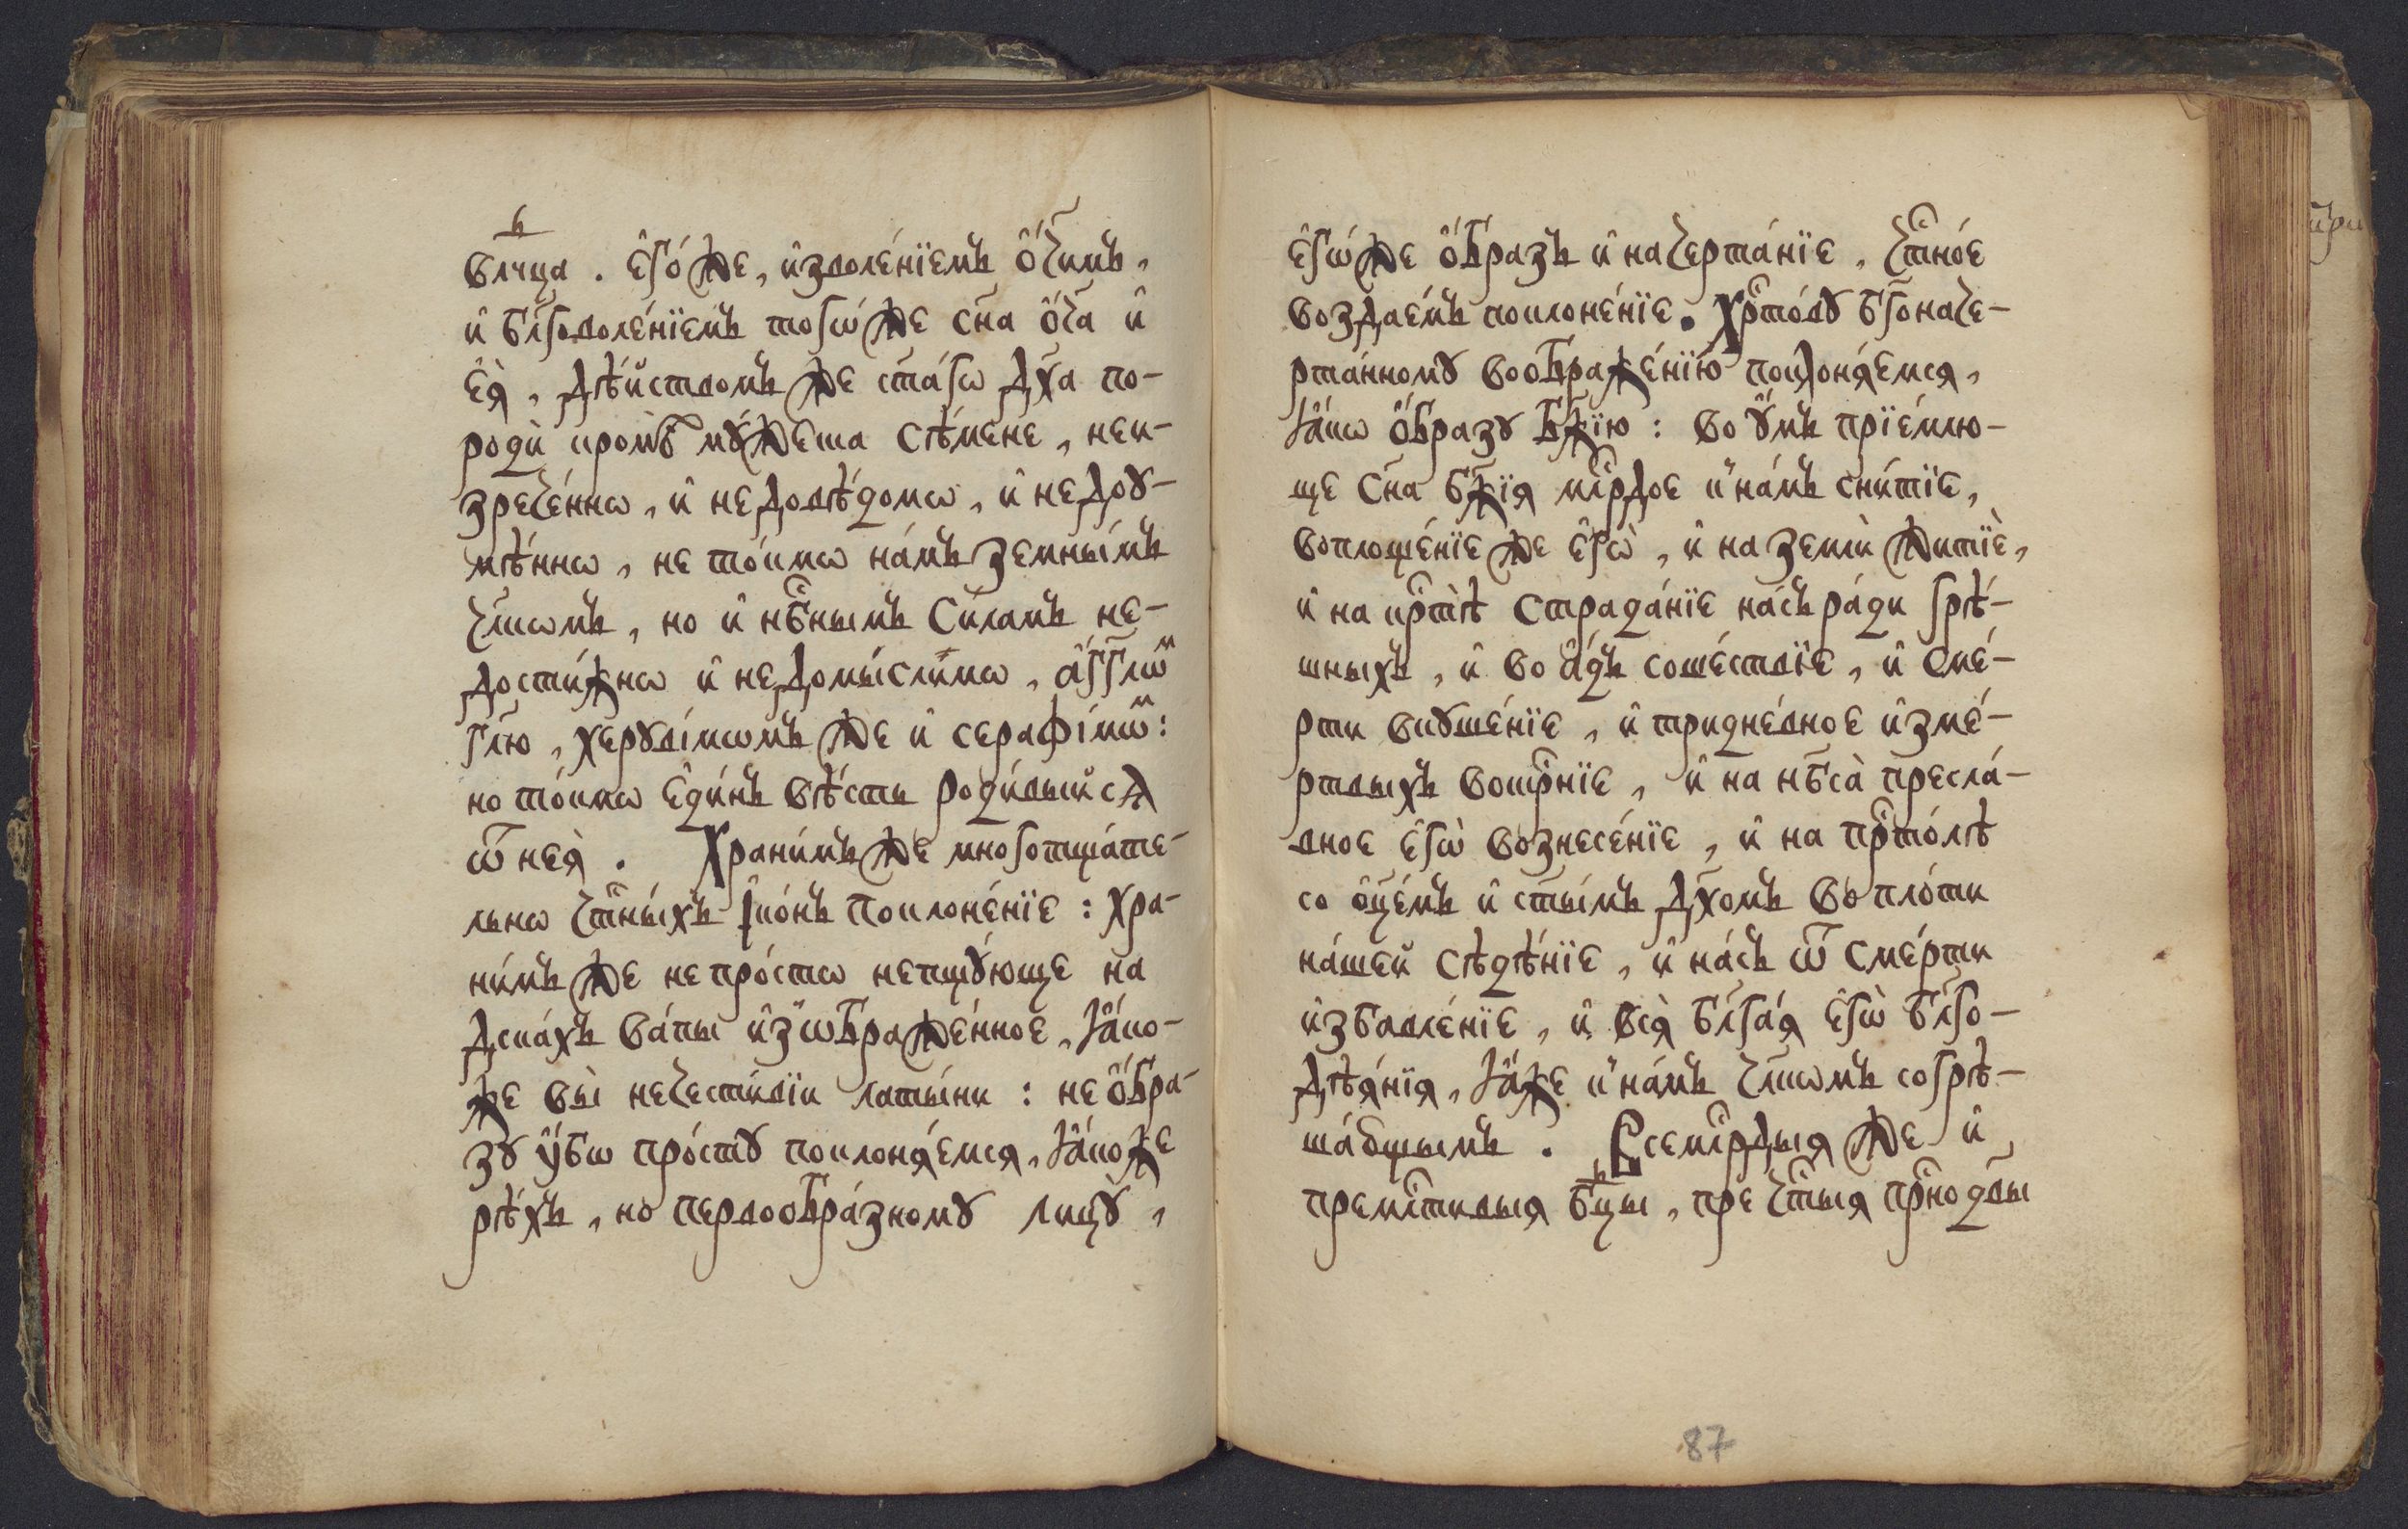 влⷣчца . є҆го́же , и҆зволе́нїемъ ѻ҆́ч҃имъ ,
и҆ бл҃говоле́нїемъ тогѡ́же сн҃а ѻ҆ч҃а и҆
є҆ѧ̀ , дѣ́йствомъ же ст҃а́гѡ дх҃а по-
родѝ кромѣ̀ мꙋ́жеска сѣ́мене , неи-
зрече́ннѡ , и҆ недовѣ́домѡ , и҆ недоꙋ-
мѣ́ннѡ , не то́кмѡ на́мъ земны́мъ
чл҃кѡмъ , но и҆ нбⷭ҇нымъ си́ламъ не-
дости́жнѡ и҆ недомы́слимѡ , а҆́гг҃лѡⷨ
гл҃ю , херꙋві́мѡмъ же и҆ серафі́мѡⷨ :
но то́кмѡ є҆ди́нъ вѣ́сть роди́выйсѧ
ѿ неѧ̀ . Храни́мъ же многотща́те-
льнѡ чⷭ҇тны́хъ і҆ко́нъ поклоне́нїе : хра-
ни́мъ же не про́стѡ непщꙋ́юще на
дска́хъ ва́пы и҆зѡбраже́нное , ꙗ҆́ко-
же вы̀ нечести́вїи латы́ни : не ѻ҆́бра-
зꙋ ᲂу҆́бѡ про́стꙋ поклонѧ́емсѧ , ꙗ҆́коже
рѣ́хъ , но первоѻбра́зномꙋ лицꙋ̀ ,
є҆гѡ́же ѻ҆́бразъ и҆ начерта́нїе , чⷭ҇тно́е
воздае́мъ поклоне́нїе . Хрⷭ҇то́вꙋ бг҃оначе-
рта́нномꙋ воѻбраже́нїю поклонѧ́емсѧ ,
ꙗ҆́кѡ ѻ҆́бразꙋ бж҃їю : во ᲂу҆́мъ прїе́млю-
ще сн҃а бж҃їѧ млⷭ҇рдое к̾на́мъ сни́тїе ,
воплоще́нїе же є҆гѡ̀ , и҆ на землѝ житїѐ ,
и҆ на крⷭ҇тѣ̀ страда́нїе на́съ ра́ди грѣ́-
шныхъ , и҆ во а҆́дъ соше́ствїе , и҆ сме́-
рти вкꙋше́нїе , и҆ тридне́вное и҆зме́-
ртвыхъ воскрⷭ҇нїе , и҆ на нб҃са̀ пресла́-
вное є҆гѡ̀ вознесе́нїе , и҆ на прⷭ҇то́лѣ
со ѻ҆ц҃е́мъ и҆ ст҃ы́мъ дх҃омъ во пло́ти
на́шей сѣдѣ́нїе , и҆ на́съ ѿ сме́рти
и҆збавле́нїе , и҆ всѧ̀ бл҃га́ѧ є҆гѡ̀ бл҃го-
дѣѧ́нїѧ , ꙗ҆́же к̾на́мъ чл҃кѡмъ согрѣ-
ша́вшымъ . Всемлⷭ҇рдыѧ же и҆
премлⷭ҇тивыѧ бцⷣы , пречⷭ҇тыѧ прⷭ҇нодв҃ы
87